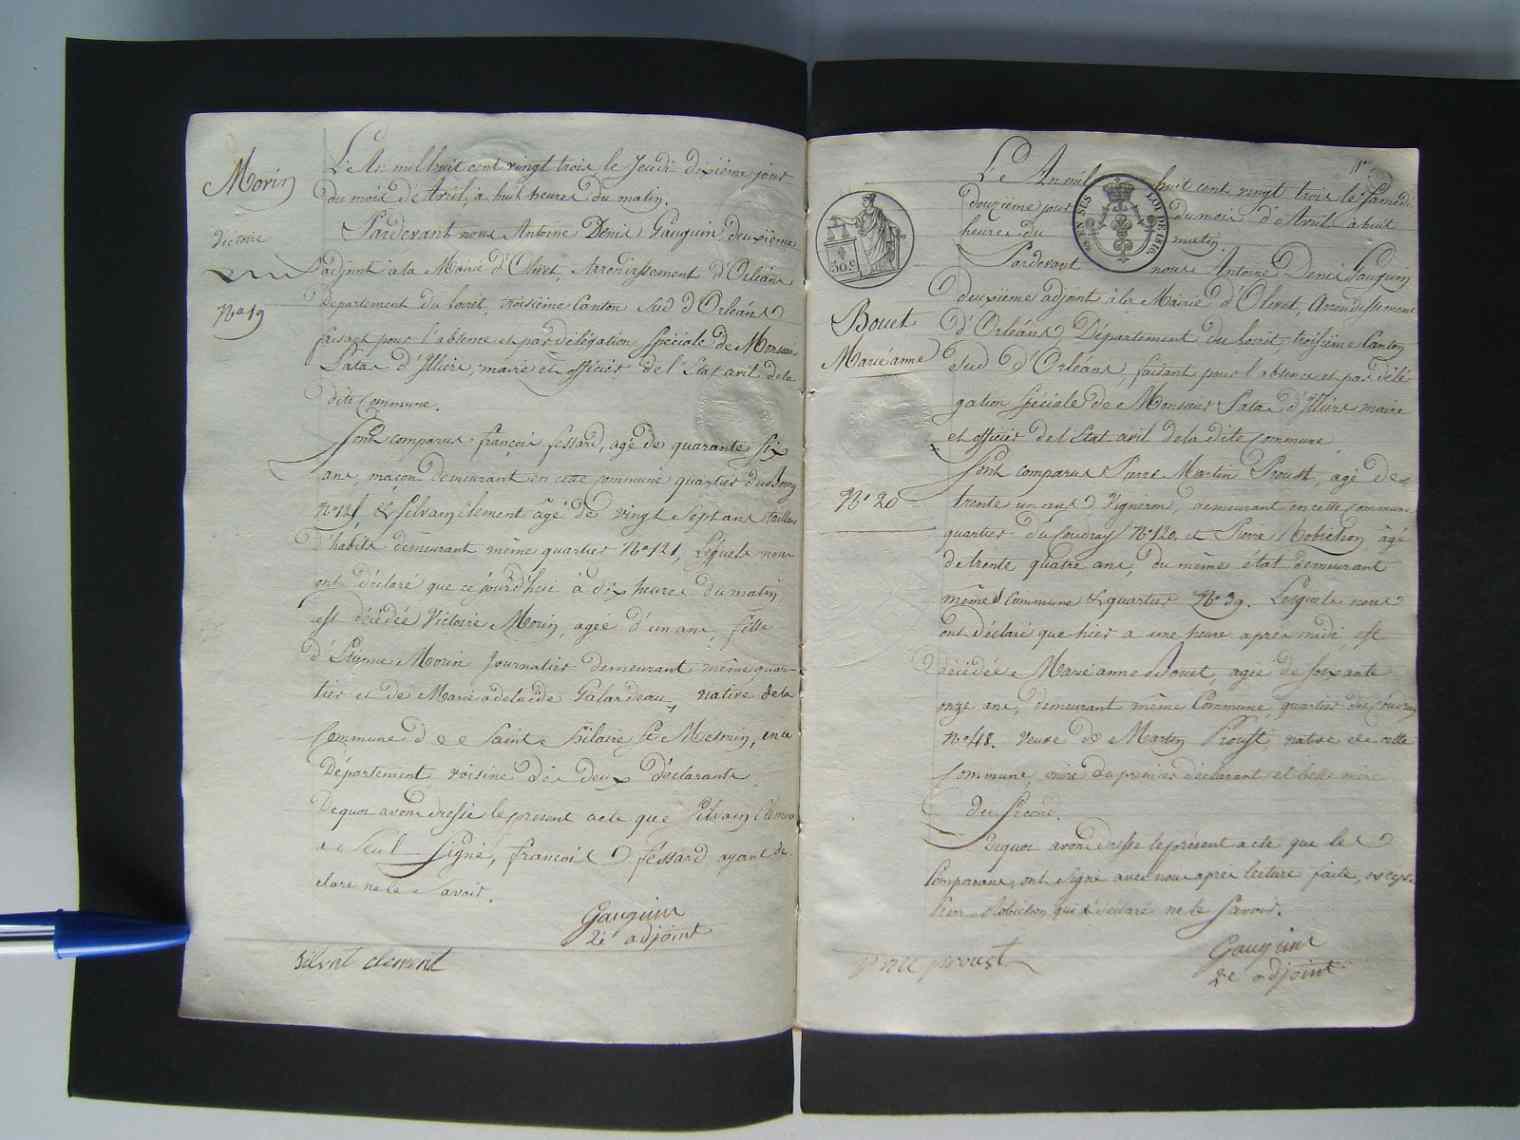 Morin
Victoire
No 19
L'An mil huit cent vingt trois le Jeudi dixième jour
du mois d'Avril, à huit heures du matin.
Pardevant nous Antoine Denis Gauguin, deuxième
adjoint à la Mairie d'Olivet, Arrondissement d'Orléans
Département du Loiret, troisième Canton Sud d'Orléans
faisant pour l'absence et par délégation spéciale de Monsieur
d'Illiers, maire et officier de l'Etat civil de la
dite Commune.
Sont comparus françois fessard, agé de quarante six
ans, maçon demeurant en cette commune quartier du Bourg
et Silvain Clément âgé de vingt sept ans tailleur
d'habits demeurant même quartier No 121, Lesquels nous
ont déclaré que ce jourd'hui à dix heures du matin
est décédée Victoire Morin, agée d'un an, fille
d'Etienne Morin Journalier demeurant même quar-
tier et de Marie adelaïde Galardeau, native de la
Commune de Saint Hilaire St Mesmin, en ce
Département, voisine des deux déclarants
Dequoi avons dressé le présent acte que Silvain Clément
a seul Signé, françois fessard ayant dé-
claré ne le Savoir.
Gauguin
2e adjoint
Silvat clement
30 c
LOI DE 1816
Bouet
Marie anne
No 20
Le An mil huit cent vingt trois le Samedi
douzième jour du mois d'Avril à huit
heures du matin.
Pardevant nous Antoine Denis Gauguin
deuxième adjoint à la Mairie d'Olivet, Arrondissement
d'Orléans, Département du Loiret, troisième Canton
Sud d'Orléans, faisant pour l'absence et par délé
gation spéciale de Monsieur d'Illiers maire
et officier de l'Etat civil de la dite commune
Sont comparus Pierre Martin Proust, agé de
trente un ans Vigneron, demeurant en cette commune
quartier du Coudray No 120, et Pierre Robichon, âgé
de trente quatre ans, du même état demeurant
même Commune & quartier No 39. Lesquels nous
ont déclaré que hier a une heure après midi, est
décédée Marie anne Bouet, agée de soixante
onze ans, demeurant même Commune, quartier du Coudray
No 48. Veuve de Martin Proust native de cette
Commune, mère du premier déclarant et belle mère
du Second.
Dequoi avons dressé le présent acte que les
Comparans, ont signé avec nous après lecture faite, excep-
tion Robichon qui a déclaré ne le Savoir.
proust
Gauguin
2e adjoint